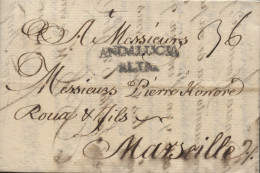 A Messieurs 36
ANDALUCIA
ALTA
Messieurs Pierre Honoré
Roux & fils
Marseille